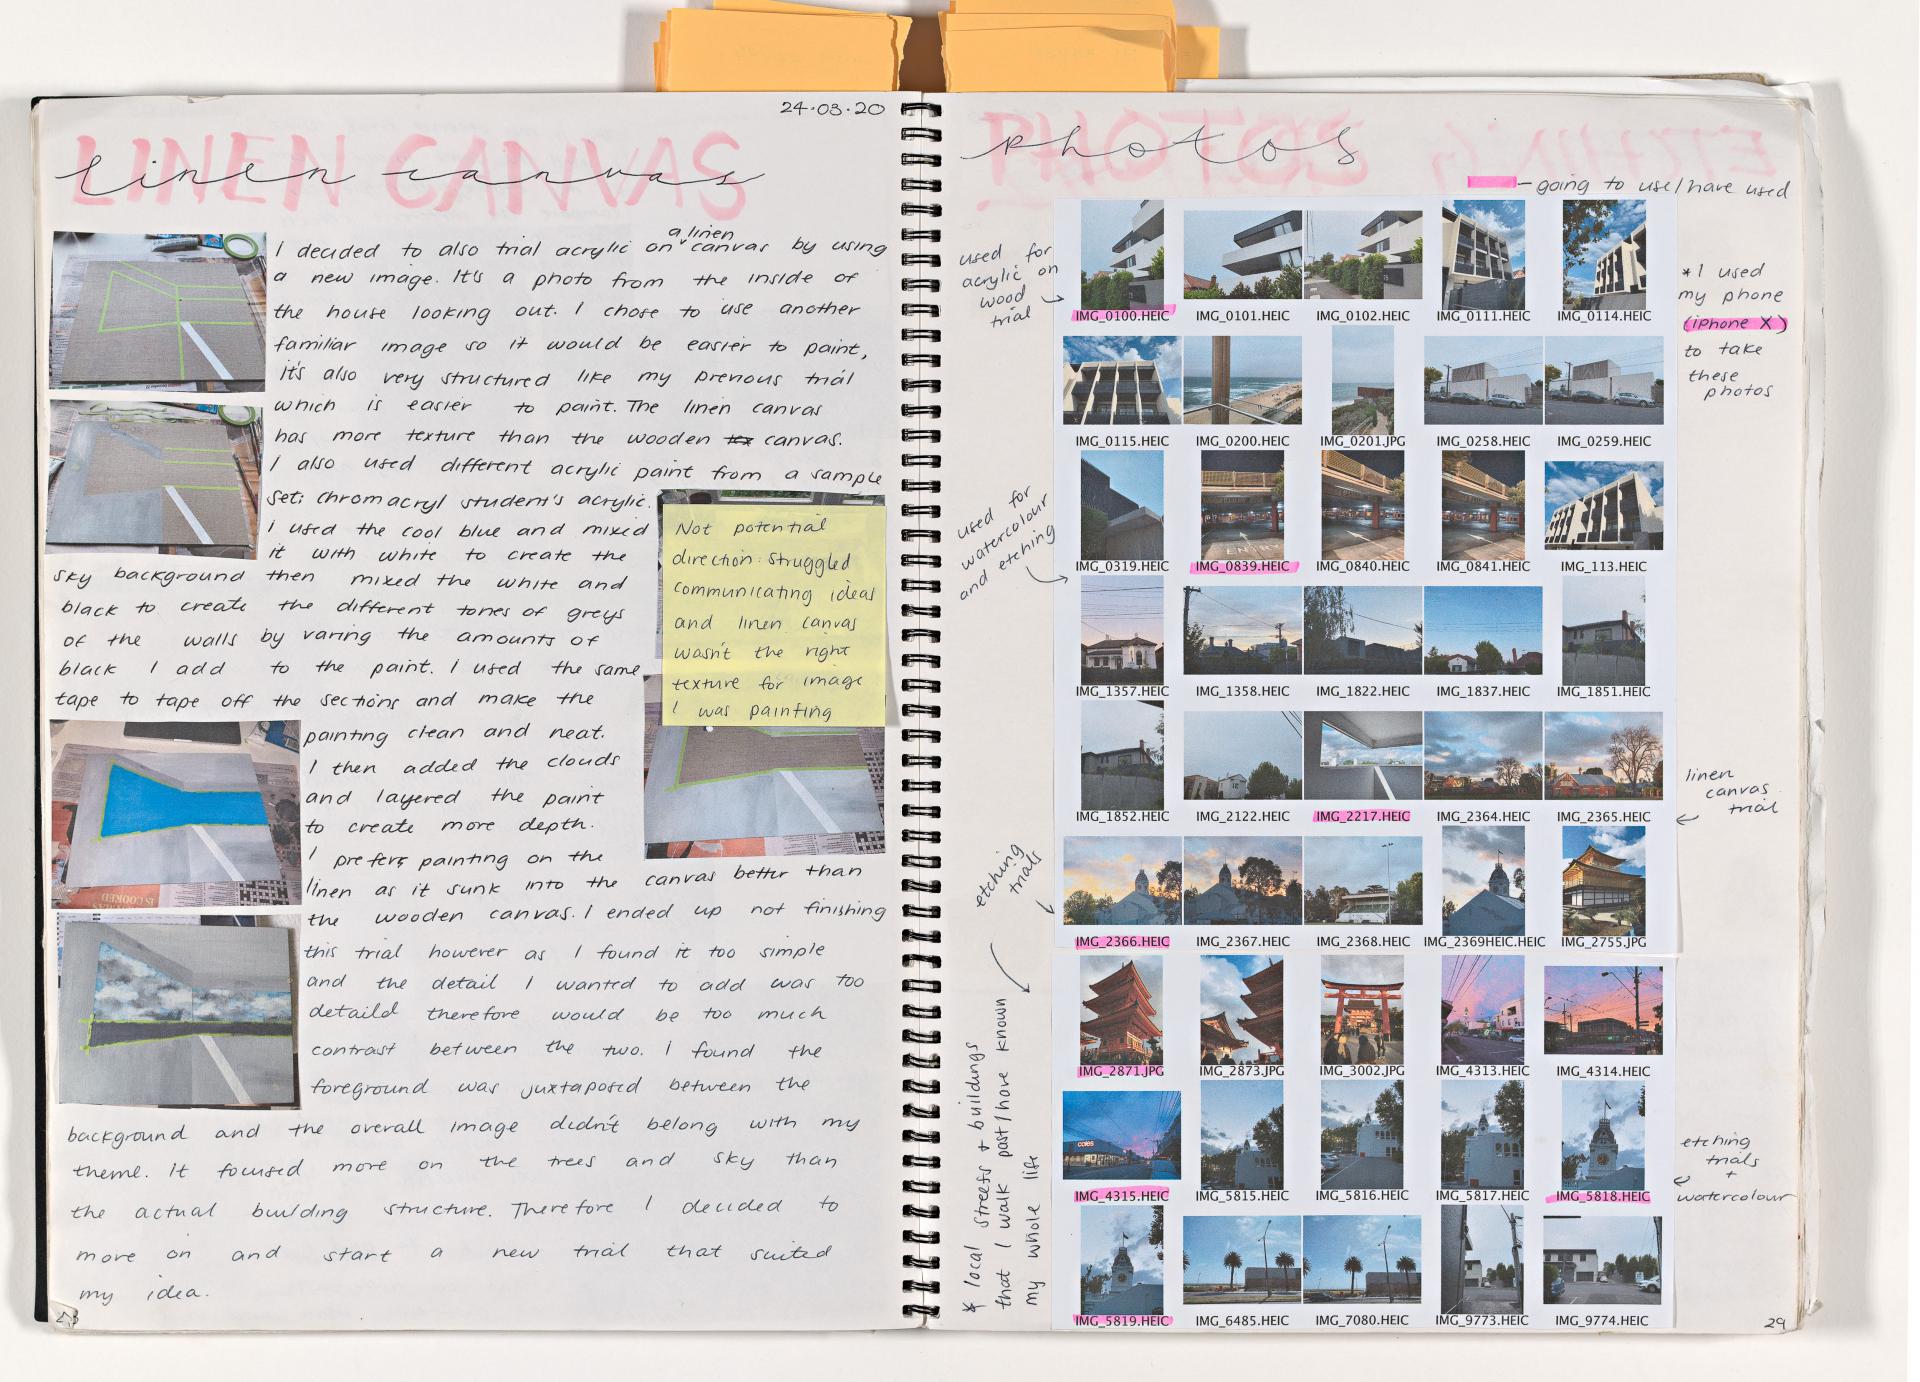 24·03·20
LINEN CANVAS
linen canvas
I decided to also trial acrylic on a linen canvas by using
a new image. It's a photo from the inside of
the house looking out. I chose to use another
familiar image so it would be easier to paint,
it's also very structured like my previous trial
which is easier to paint. The linen canvas
has more texture than the wooden tex canvas.
I also used different acrylic paint from a sample
set: chromacryl student's acrylic.
I used the cool blue and mixed
it with white to create the
sky background then mixed the white and
black to create the different tones of greys
of the walls by varing the amounts of
black I add to the paint. I used the same
tape to tape off the sections and make the
painting clean and neat.
I then added the clouds
and layered the paint
to create more depth.
I prefer painting on the
linen as it sunk into the canvas better than
the wooden canvas. I ended up not finishing
this trial however as I found it too simple
and the detail I wanted to add was too
detaild therefore would be too much
contrast between the two. I found the
foreground was juxtaposed between the
background and the overall image didn't belong with my
theme. It focused more on the trees and sky than
the actual building structure. Therefore I decided to
more on and start a new trial that suited
my idea.
Not potential
direction: struggled
communicating ideas
and linen canvas
wasn't the right
texture for image
I was painting
PHOTOS
photos
- going to use/have used
used for
acrylic on
wood
trial
*I used
my phone
(iphone X)
to take
these
photos
IMG_0100.HEIC IMG_0101.HEIC IMG_0102.HEIC IMG_0111.HEIC IMG_0114.HEIC
IMG_0115.HEIC IMG_0200.HEIC IMG_0201.JPG IMG_0258.HEIC IMG_0259.HEIC
used for
watercolour
and etching
ENTRY
IMG_0319.HEIC IMG_0839.HEIC IMG_0840.HEIC IMG_0841.HEIC IMG_113.HEIC
IMG_1357.HEIC IMG_1358.HEIC IMG_1822.HEIC IMG_1837.HEIC IMG_1851.HEIC
IMG_1852.HEIC IMG_2122.HEIC IMG_2217.HEIC IMG_2364.HEIC IMG_2365.HEIC
linen
canvas
trial
etching
trials
IMG_2366.HEIC IMG_2367.HEIC IMG_2368.HEIC IMG_2369HEIC.HEIC IMG_2755.JPG
IMG_2871.JPG IMG_2873.JPG IMG_3002.JPG IMG_4313.HEIC IMG_4314.HEIC
coles
IMG_4315.HEIC IMG_5815.HEIC IMG_5816.HEIC IMG_5817.HEIC IMG_5818.HEIC
etching
trials
+
watercolour
* local streets + buildings
that I walk past/have known
my whole life
IMG_5819.HEIC IMG_6485.HEIC IMG_7080.HEIC IMG_9773.HEIC IMG_9774.HEIC
29